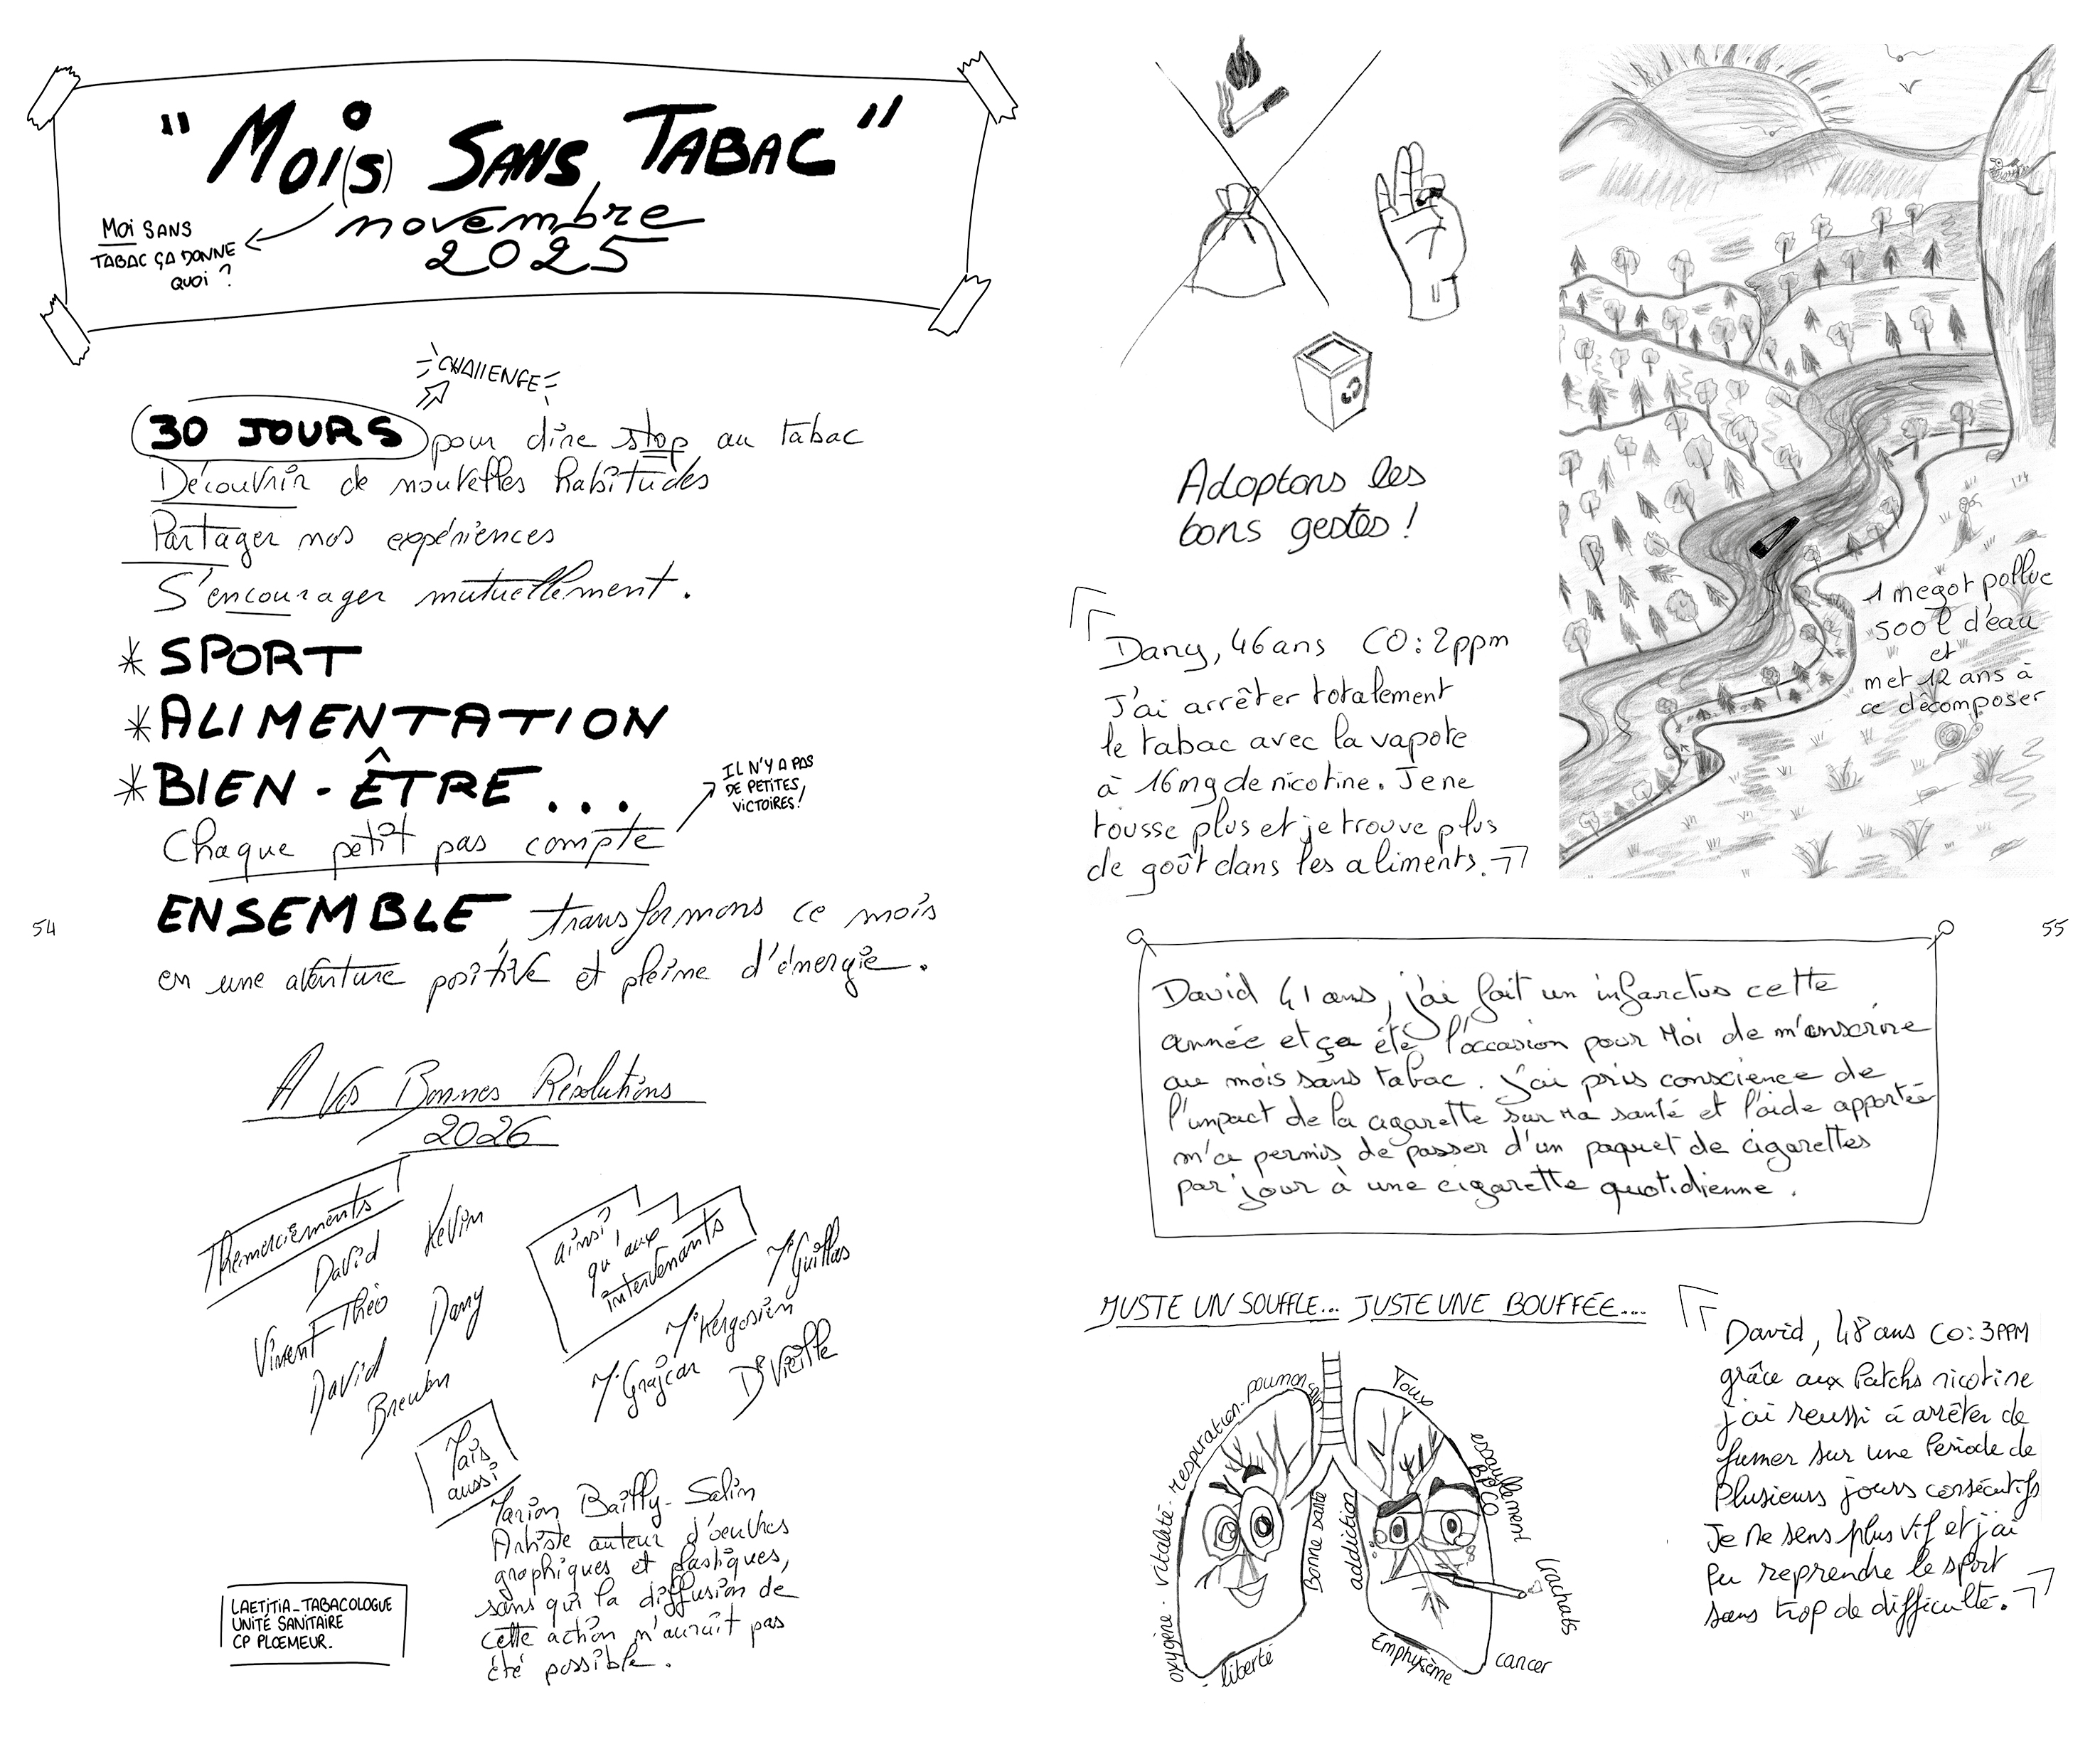 "Moi(s) SANS TABAC"
novembre
2025
Moi SANS
TABAC ÇA DONNE
QUOI ?
CHALLENGE
30 JOURS pour dire stop au tabac
Découvrir de nouvelles habitudes
Partager nos expériences
S'encourager mutuellement.
* SPORT
* ALIMENTATION
* BIEN-ÊTRE...
IL N'Y A PAS
DE PETITES
VICTOIRES!
Chaque petit pas compte
ENSEMBLE transformons ce mois
en une aventure positive et pleine d'énergie.
A Vos Bonnes Résolutions
2026
David Kevin
Théo Dany
Vincent
David
ainsi
qu'aux
intervenants
Dr Vieille
Mais
aussi
Marion Bailly-Salin
Artiste auteur d'oeuvres
graphiques et plastiques,
sans qui la diffusion de
cette action n'aurait pas
été possible.
LAETITIA_TABACOLOGUE
UNITÉ SANITAIRE
CP PLOEMEUR.
54
Adoptons les
bons gestes !
1 megot pollue
500 l d'eau
et
met 12 ans à
ce décomposer
Dany, 46 ans CO: 2ppm
J'ai arrêter totalement
le tabac avec la vapote
à 16mg de nicotine. Je ne
tousse plus et je trouve plus
de goût dans les aliments.
55
David 41 ans, j'ai fait un infarctus cette
année et ça été l'occasion pour Moi de m'enscrire
au mois sans tabac. J'ai pris conscience de
l'impact de la cigarette sur ma santé et l'aide apportée
m'a permis de passer d'un paquet de cigarettes
par jour à une cigarette quotidienne.
JUSTE UN SOUFFLE... JUSTE UNE BOUFFÉE....
oxygène - vitalité - respiration - poumon sain
Bonne santé
- liberté
addiction
Toux
essoulement
BPCO
crachats
cancer
Emphysème
David, 48 ans CO: 3PPM
grâce aux Patchs nicotine
j'ai reussi à arrêter de
fumer sur une Periode de
Plusieurs jours consécutifs
Je me sens plus vif et j'ai
Pu reprendre le sport
sans trop de difficulté.